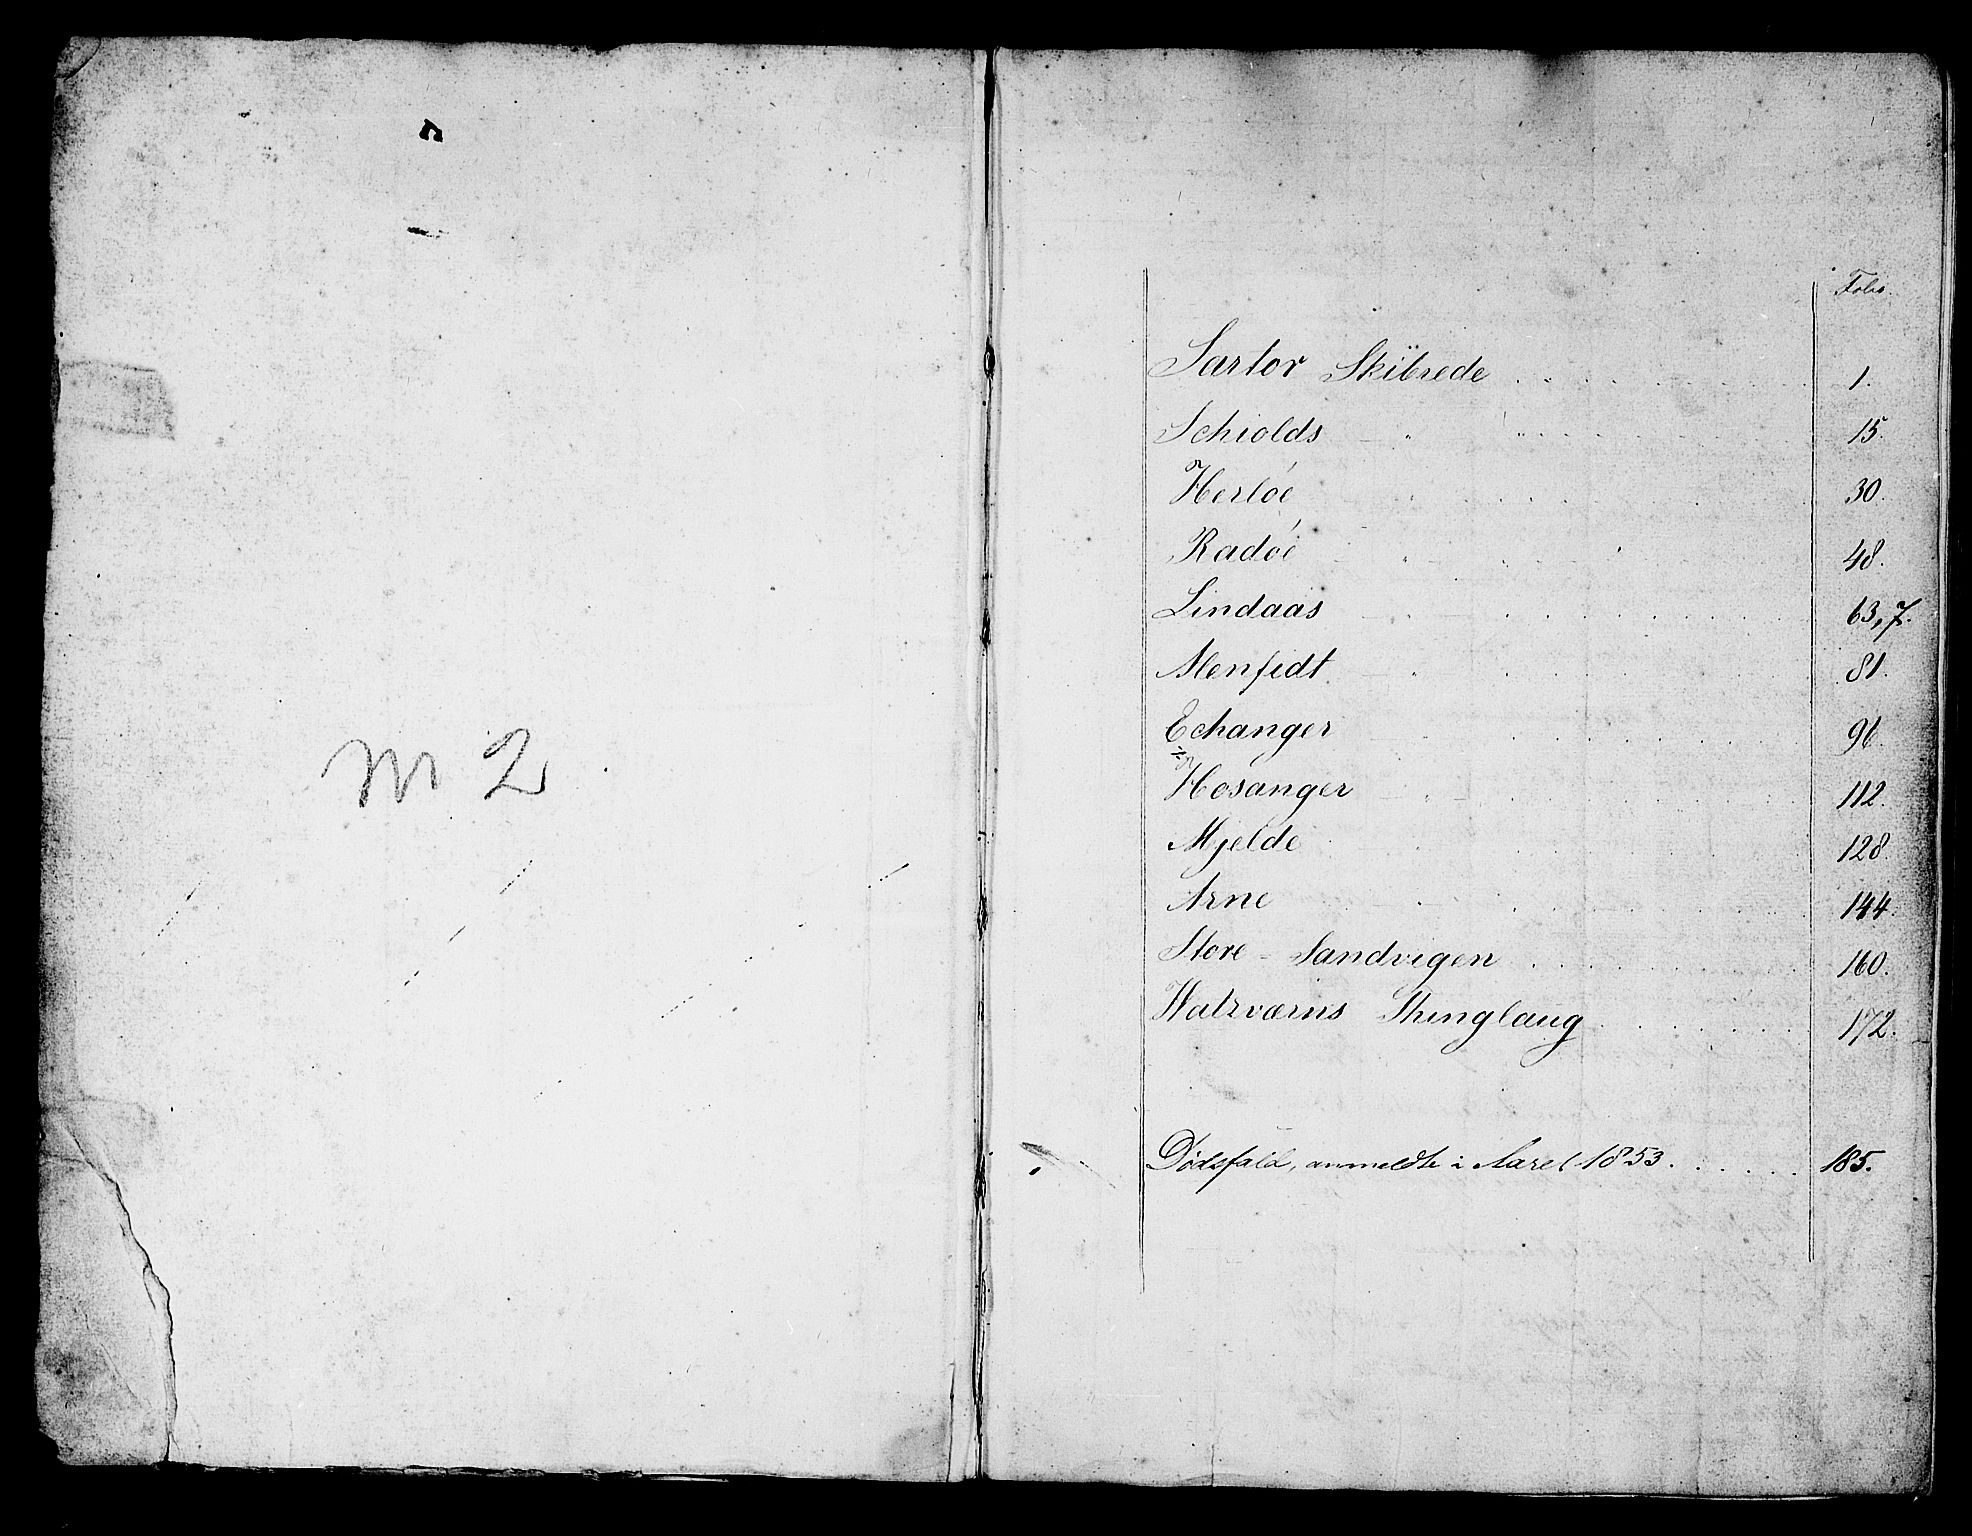 m 2
Folio
Sartor Skibrede . . . . . . . . . . 1.
Schiolds — " — " . . . . . . . . 15.
Herlöe — " . . . . . . . . 30.
Radöe — " . . . . . . . . 48.
Lindaas — " — . . . . . . . . 63,7.
Alenfidt — " . . . . . . . . 81.
Echanger . . . . . . . . 96.
Hosanger — " — . . . . . . . . 112.
Mjelde . . . . . . . . 128
Arne — " . . . . . . . . 144.
Store - Sandvigen . . . . . . . . 160.
Hatzværns Thinglaug . . . . . . . . 172.
Dödsfald, anmeldte i Aaret 1853. . . . . . 185.